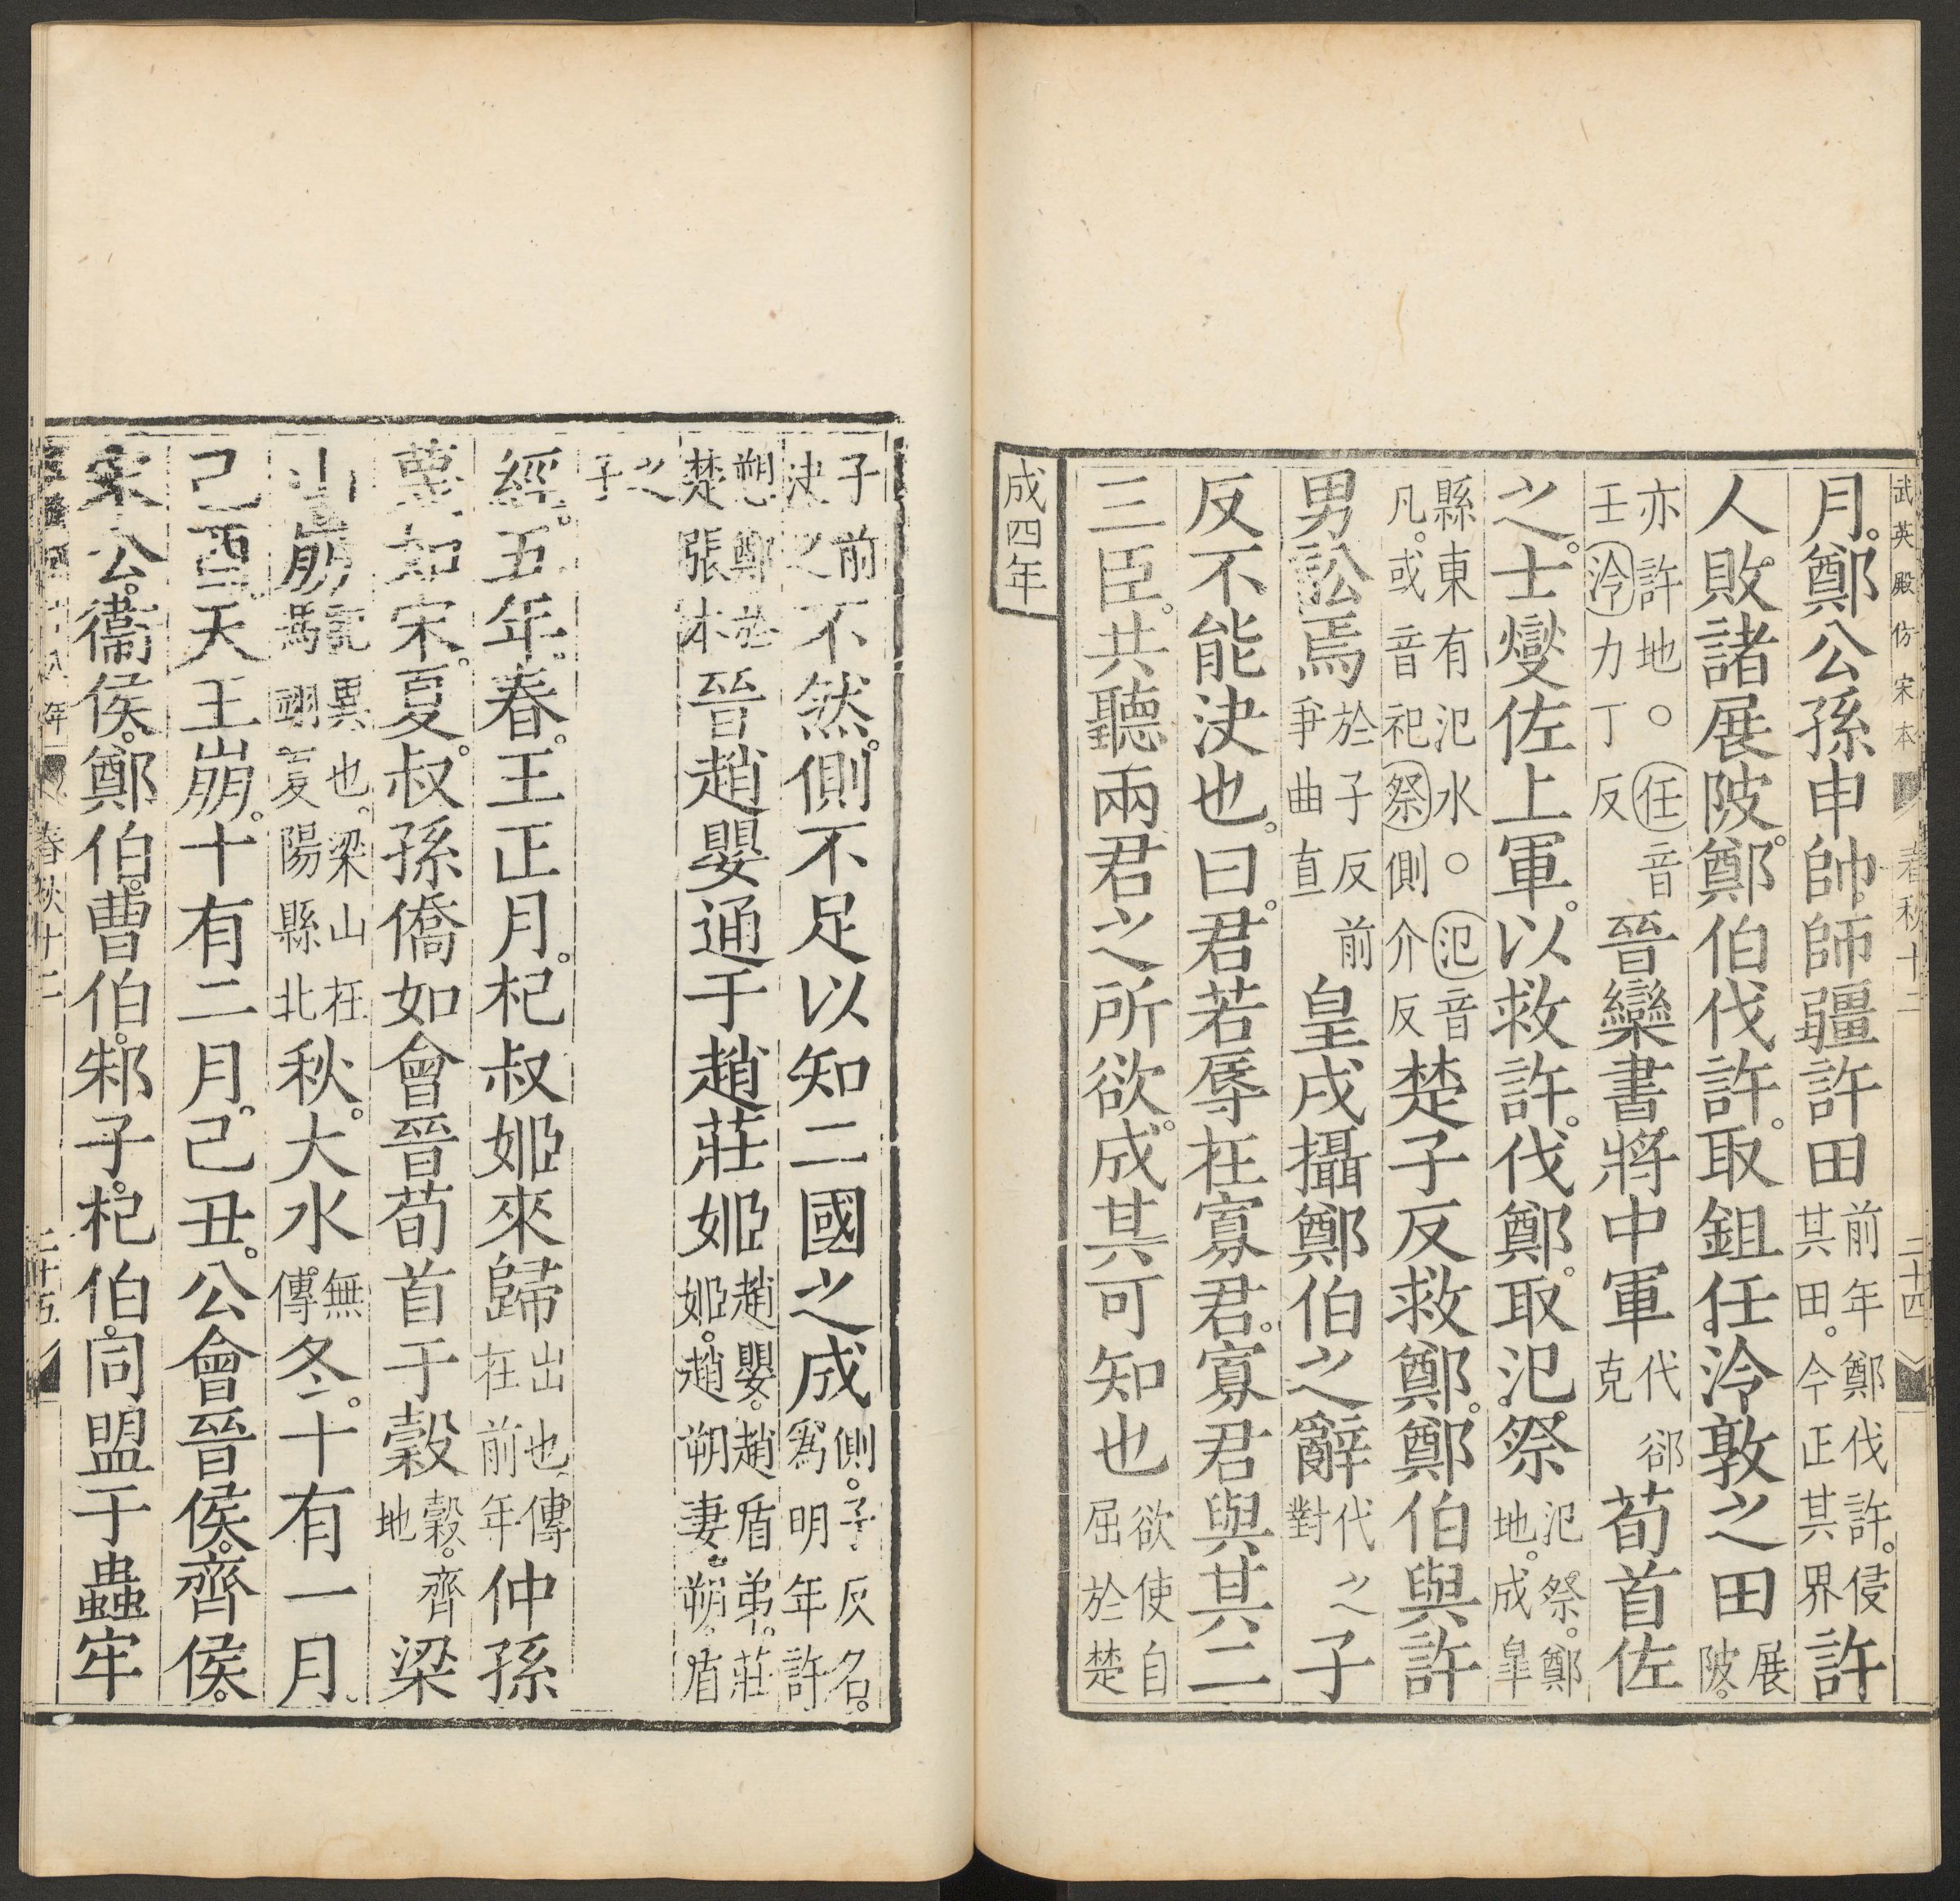 武英殿仿宋本 春秋十二 二十四
月。鄭公孫申帥師疆許田前年鄭伐許。侵其田。今正其界許
人敗諸展陂。鄭伯伐許。取鉏任。泠敦之田展陂。
亦許地○任音壬泠力丁反晉欒書。將中軍代郤克荀首佐
之。士燮佐上軍。以救許。伐鄭。取氾。祭氾。祭。鄭地。成皐
縣東有氾水○氾音凡。或音祀祭側介反楚子反救鄭。鄭伯與許
男訟焉於子反前爭曲直皇戌攝鄭伯之辭代之對子
反不能決也。曰。君若辱在寡君。寡君與其二
三臣。共聽兩君之所欲。成其可知也欲使自屈於楚
成四年
子前決之不然。側不足以知二國之成側。子反名。爲明年許
愬鄭於楚張本晉趙嬰通于趙莊姬趙嬰。趙盾弟。莊姬。趙朔妻。朔。盾
之子
經。五年。春。王正月。杞叔姬來歸出也。傳在前年仲孫
蔑如宋。夏。叔孫僑如會晉荀首于穀穀。齊地梁
山崩記異也。梁山在馮翊夏陽縣北秋。大水無傳。冬。十有一月。
己酉。天王崩。十有二月。己丑。公會晉侯。齊侯。
宋公。衞侯。鄭伯。曹伯。邾子。杞伯。同盟于蟲牢
春秋十二 二十五